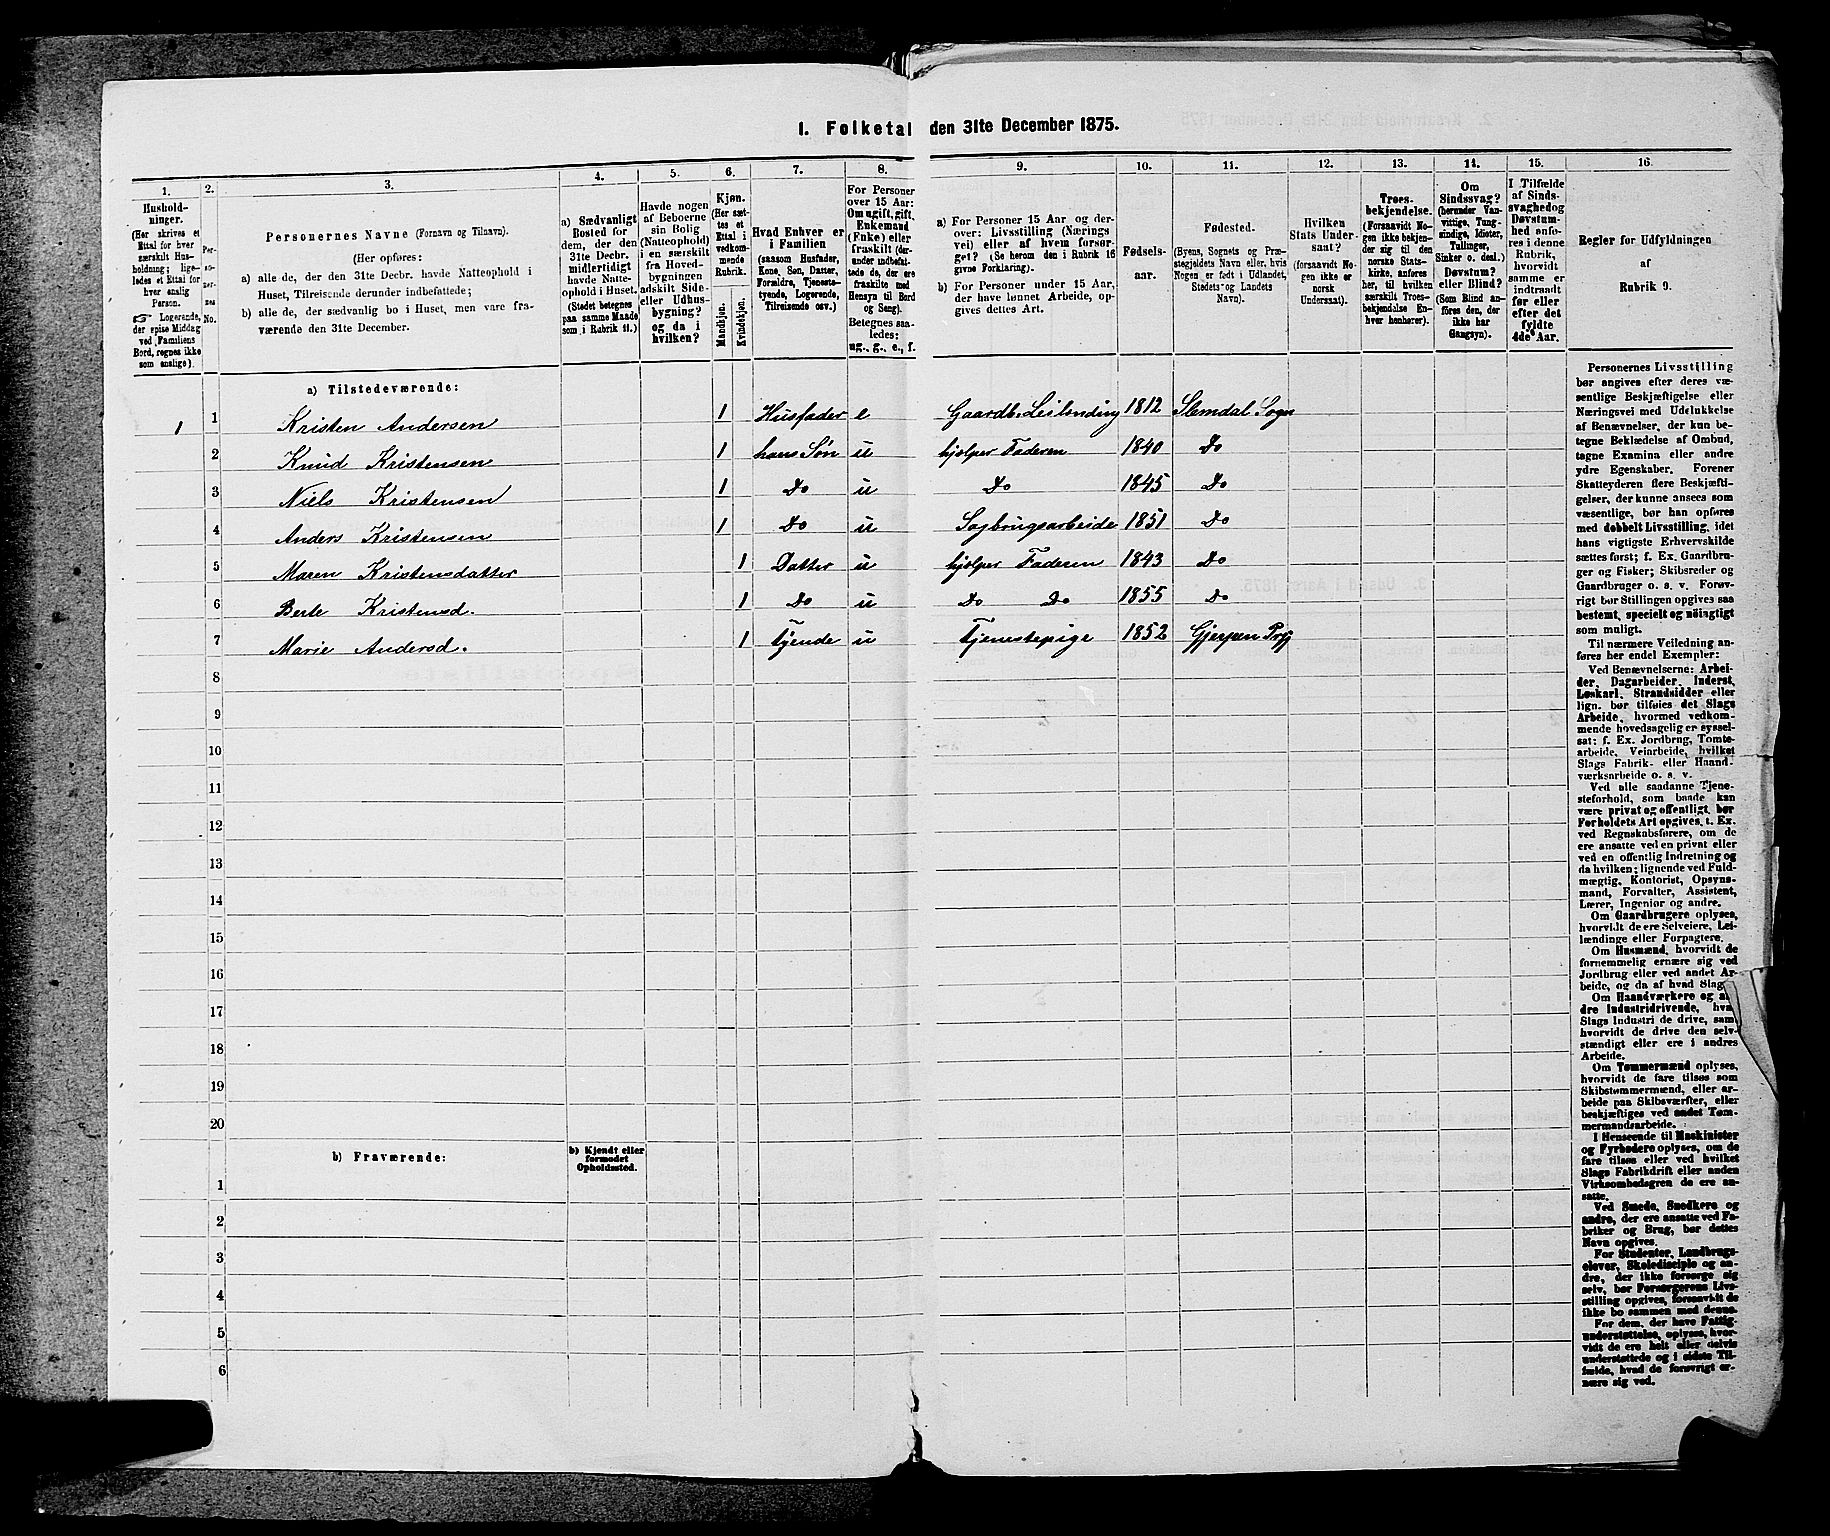 1. Folketal den 31te December 1875.
1. 2. 3. 4. 5. 6. 7. 8. 9. 10. 11. 12. 13. 14. 15. 16.
Husholdninger.
(Her skrives et
Ettal for hver
særskilt Husholdning;
ligeledes et Ettal for
hver enslig
Person.
☞ Logerende,
der spise Middag
ved Familiens
Bord, regnes ikke
som enslige).
Personernes No.
Personernes Navne (Fornavn og Tilnavn).
(Her opføres:
a) alle de, der den 31te Decbr. havde Natteophold i
Huset, Tilreisende derunder indbefattede;
b) alle de, der sædvanlig bo i Huset, men vare fraværende
den 31te December.
a) Sædvanligt
Bosted for
dem, der den
31te Decbr.
midlertidigt
havde Natteophold
i Huset.
(Stedet betegnes
paa samme Maade
som i Rubrik 11.)
Havde nogen
af Beboerne
sin Bolig
(Natteophold)
i en særskilt
fra Hovedbygningen
adskilt Side-
eller Udhusbygning?
og da i
hvilken?
Kjøn.
(Her sættes
et
Ettal i
vedkommende
Rubrik.
Mandkjøn.
Kvindekjøn.
Hvad Enhver er
i Familien
(saasom Husfader,
Kone, Søn, Datter,
Forældre, Tjenestetyende,
Logerende,
Tilreisende osv.)
For Personer
over 15 Aar:
Om ugift, gift,
Enkemand
(Enke) eller
fraskilt (derunder
indbefattede
de, der ere
fraskilte med
Hensyn til Bord
og Seng).
Betegnes saaledes:
ug., g., e., f.
a) For Personer 15 Aar og derover:
Livsstilling (Næringsvei)
eller af hvem forsørget?
(Se herom den i Rubrik 16
givne Forklaring).
b) For Personer under 15 Aar,
der have lønnet Arbeide, opgives
dettes Art.
Fødselsaar.
Fødested.
(Byens, Sognets og Præstegjeldets
Navn eller, hvis
Nogen er født i Udlandet,
Stedets og Landets
Navn).
Hvilken
Stats Undersaat?
(forsaavidt Nogen
ikke er
norsk
Undersaat).
Troesbekjendelse.
(Forsaavidt Nogen
ikke bekjender
sig til den
norske Statskirke,
anføres
her, til hvilken
særskilt Troesbekjendelse
Enhver
henhører).
Om
Sindssvag?
(herunder Vanvittige,
Tungsindige,
Idioter,
Tullinger,
Sinker o. desl.)
Døvstum?
eller Blind?
(Som Blind anføres
den, der
ikke har
Gangsyn).
I Tilfælde
af Sindssvaghed
og
Døvstumhed
anføres
i denne
Rubrik,
hvorvidt
samme er
indtraadt
før eller
efter det
fyldte
4de Aar.
Regler for Udfyldningen
af
Rubrik 9.
a) Tilstedeværende:
1 1 Kristen Andersen 1 Husfader e Gaardb. Leilending 1812 Slemdal Sogn
2 Knud Kristensen 1 hans Søn u hjælper Faderen 1840 Do
3 Niels Kristensen 1 Do u Do 1845 Do
4 Anders Kristensen 1 Do u Sagbrugsarbeide 1851 Do
5 Maren Kristensdatter 1 Datter u hjælper Faderen 1843 Do
6 Berte Kristensd. 1 Do u Do Do 1855 Do
7 Marie Andersd. 1 Tyende u Tjenestepige 1852 Gjerpen Prgj
8
9
10
11
12
13
14
15
16
17
18
19
20
b) Fraværende:
b) Kjendt eller
formodet
Opholdssted.
1
2
3
4
5
6
Personernes Livsstilling
bør angives efter deres væsentlige
Beskjæftigelse eller
Næringsvei med Udelukkelse
af Benævnelser, der kun betegne
Beklædelse af Ombud,
tagne Examina eller andre
ydre Egenskaber. Forener
Skatteyderen flere Beskjæftigelser,
der kunne ansees som
væsentlige, bør han opføres
med dobbelt Livsstilling, idet
hans vigtigste Erhvervskilde
sættes først; f. Ex. Gaardbruger
og Fisker; Skibsreder og
Gaardbruger o. s. v. Forøvrigt
bør Stillingen opgives saa
bestemt, specielt og nøiagtigt
som muligt.
Til nærmere Veiledning anføres
her endel Exempler:
Ved Benævnelserne: Arbeider,
Dagarbeider, Inderst,
Løskarl, Strandsidder eller
lign. bør tilføies det Slags
Arbeide, hvormed vedkommende
hovedsagelig er sysselsat:
f. Ex. Jordbrug, Tomtearbeide,
Veiarbeide, hvilket
Slags Fabrik- eller Haandværksarbeide
o. s. v.
Ved alle saadanne Tjenesteforhold,
som baade kan
være privat og offentligt, bør
Forholdets Art opgives, t. Ex.
ved Regnskabsførere, om de
ere ansatte ved en privat eller
ved en offentlig Indretning og
da hvilken; lignende ved Fuldmægtig,
Kontorist, Opsynsmand,
Forvalter, Assistent,
Lærer, Ingeniør og andre.
Om Gaardbrugere oplyses,
hvorvidt de ere Selveiere, Leilændinge
eller Forpagtere.
Om Husmænd, hvorvidt de
fornemmelig ernære sig ved
Jordbrug eller ved andet Arbeide,
og da af hvad Slags.
Om Haandværkere og andre
Industridrivende, hvad
Slags Industri de drive, samt
hvorvidt de drive den selvstændigt
eller ere i andres
Arbeide.
Om Tømmermænd oplyses,
hvorvidt de fare tilsøs som
Skibstømmermænd, eller arbeide
paa Skibsværfter, eller
beskjæftiges ved andet Tømmermandsarbeide.
I Henseende til Maskinister
og Fyrbødere oplyses, om de
fare tilsøs eller ved hvilket
Slags Fabrikdrift eller anden
Virksomhedsgren de ere ansatte.
Ved Smede, Snedkere og
andre, der ere ansatte ved Fabriker
og Brug, bør dettes
Navn opgives.
For Studenter, Landbrugselever,
Skoledisciple og andre,
der ikke forsørge sig
selv, bør Forsørgerens Livsstilling
opgives, forsaavidt de
ikke bo sammen med denne.
For dem, der have Fattigunderstøttelse,
oplyses, hvorvidt
de ere helt eller delvis
understøttede og i sidste Tilfælde,
hvad de forøvrigt ernære
sig ved.